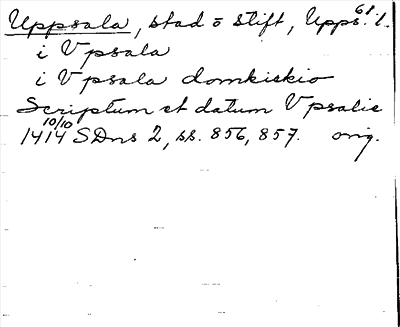 Uppsala, stad o stift, Upps. l. 61
i Vpsala
i Vpsala domkirkio
Scriptum et datum Vpsalie
1414 10/10 SDns 2, ss. 856, 857. orig.